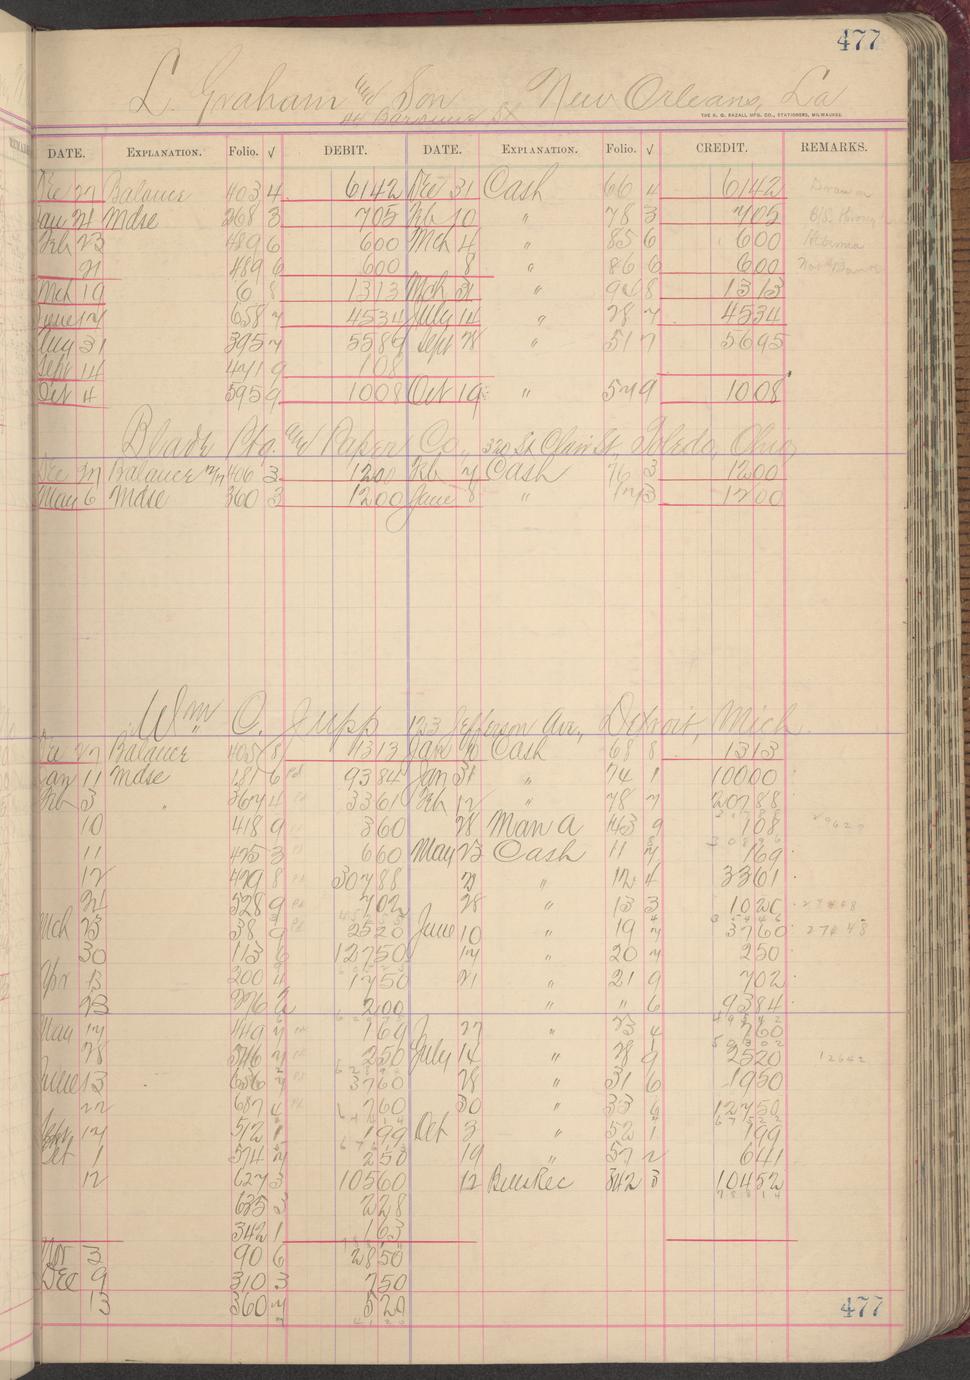 477
L. Graham and Son New Orleans, La
THE H. G. RAZALL MFG. CO., STATIONERS, MILWAUKEE.
DATE. EXPLANATION. Folio. √ DEBIT. DATE. EXPLANATION. Folio. √ CREDIT. REMARKS.
Dec 27 Balance 403 4 6142 Dec 31 Cash 66 4 6142
Jan 24 Mdse 268 3 705 Feb 10 " 78 3 705
Feb 23 489 6 600 Mch 4 " 85 6 600
21 489 6 600 8 " 86 6 600
Mch 19 6 8 1313 Mch 31 " 8 1313
June 17 658 7 4534 July 14 " 28 7 4534
Aug 31 395 7 5589 Sept 28 " 51 7 5695
Sept 14 471 9 108
Oct 4 595 9 1008 Oct 19 " 57 9 1008
Blade Ptg. and Paper Co., St Clair St, Toledo, Ohio
Dec 27 Balance 406 3 1200 Feb 7 Cash 76 3 1200
May 6 Mdse 360 3 1200 June 8 " 3 1200
Wm C. Jupp 123 Jefferson Ave., Detroit, Mich.
Dec 27 Balance 405 8 1313 Jan 10 Cash 68 8 1313
Jan 11 Mdse 181 6 9384 Jan 31 " 74 1 10000
Feb 3 " 367 4 3361 Feb 12 " 78 7 20788
10 418 9 360 28 Man A 143 9 108
11 425 3 660 May 23 Cash 11 7 169
12 429 8 30788 " 12 4 3361
21 528 9 702 28 " 13 3 1020
Mch 23 38 9 2520 June 10 " 19 7 3760
30 113 6 12750 17 " 20 7 250
Apr 13 200 4 1750 21 " 21 9 702
23 276 2 200 " " 6 9384
May 17 449 7 169 27 " 23 4 760
28 546 7 250 July 14 " 28 9 2520
June 13 656 7 3760 28 " 31 6 1950
22 687 4 760 30 " 33 6 12750
Sept 17 512 1 199 Oct 3 " 52 1 199
Oct 1 574 7 250 19 " 57 2 641
12 627 3 10560 12 Bills Rec 342 3 10452
635 3 228
342 1 163
Nov 3 90 6 2850
Dec 9 310 3 750
13 360 7 520
477